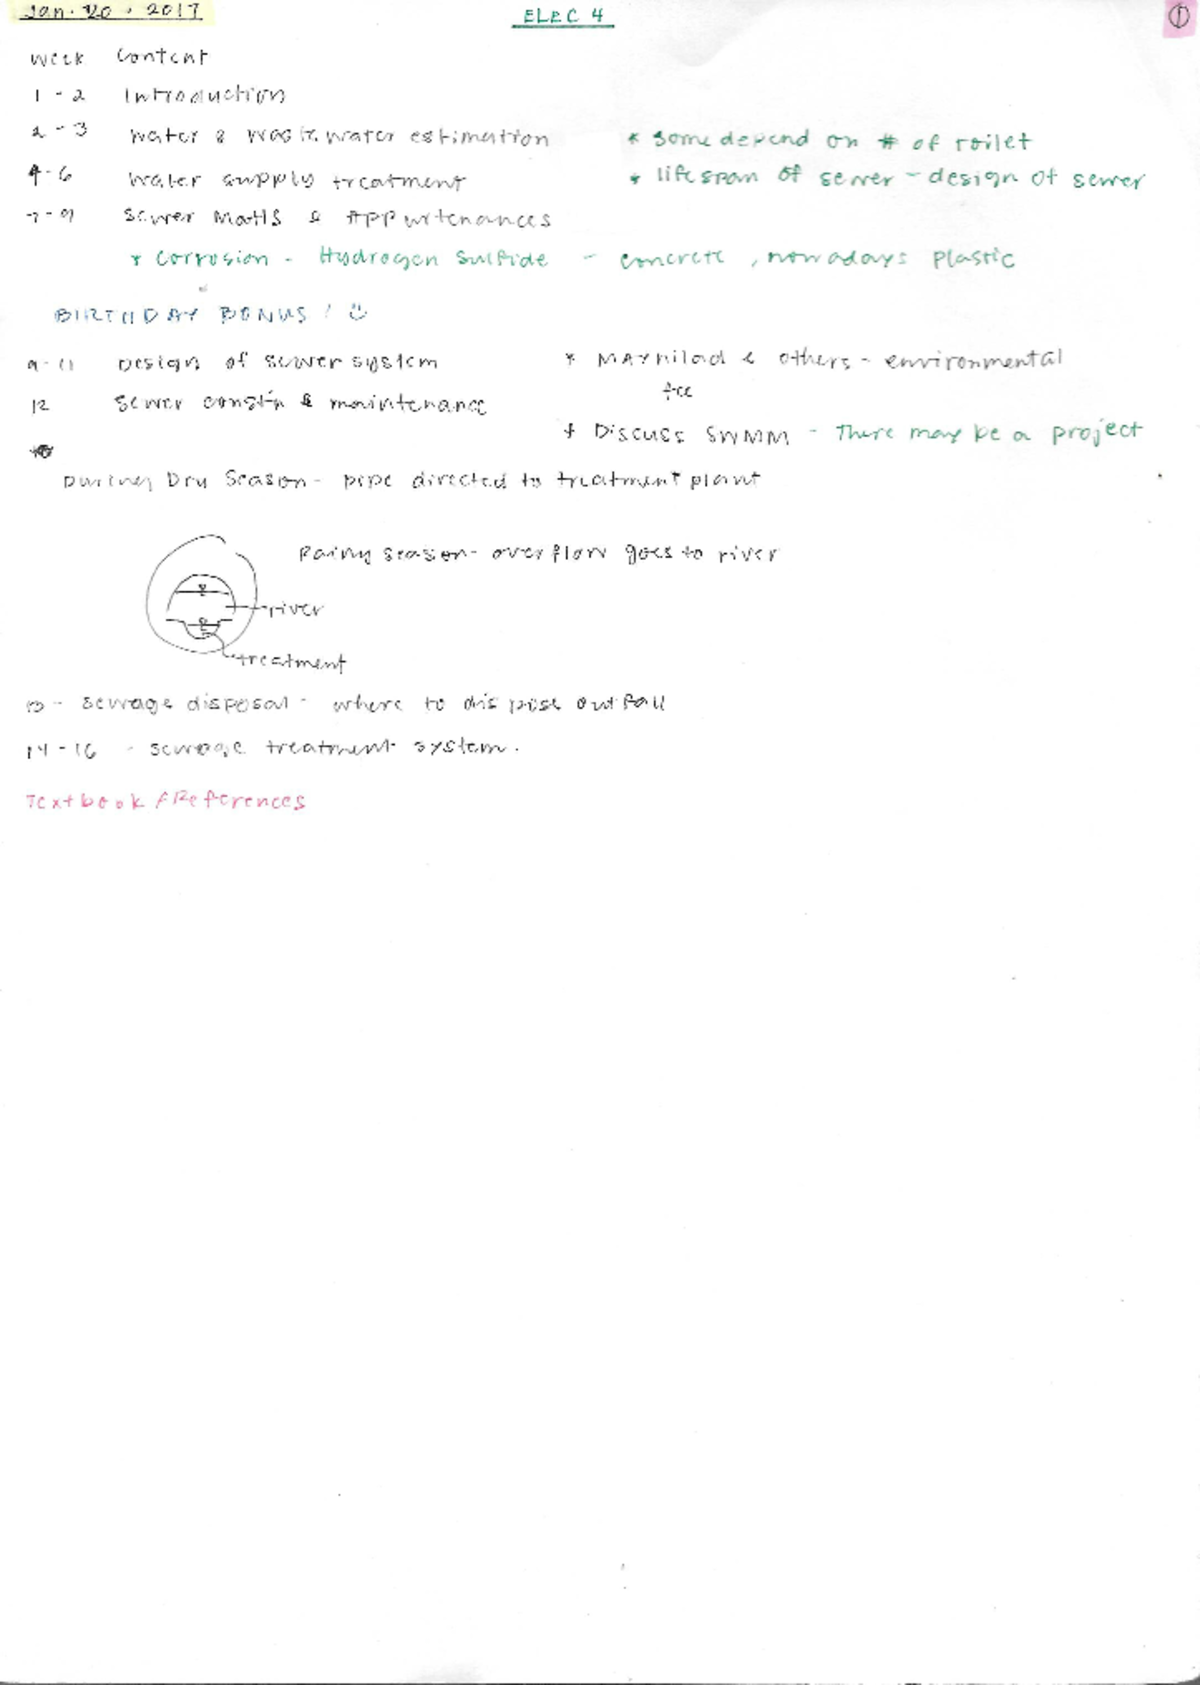 Jan. 20, 2017
ELEC 4
1
Week Content
1 - 2 Introduction
2 - 3 Water & Wastewater estimation * Some depend on # of toilet
4 - 6 Water supply treatment * lifespan of sewer - design of sewer
7 - 9 Sewer Matls & Appurtenances
* Corrosion - Hydrogen Sulfide - concrete, nowadays plastic
BIRTHDAY BONUS! :)
9 - 11 Design of sewer system * Maynilad & others - environmental
fee
12 Sewer const'n & maintenance
* Discuss SWMM - There may be a project
During Dry Season - pipe directed to treatment plant
Rainy season - overflow goes to river
river
treatment
13 - Sewage disposal - where to dispose outfall
14 - 16 - sewage treatment system.
Textbook / References